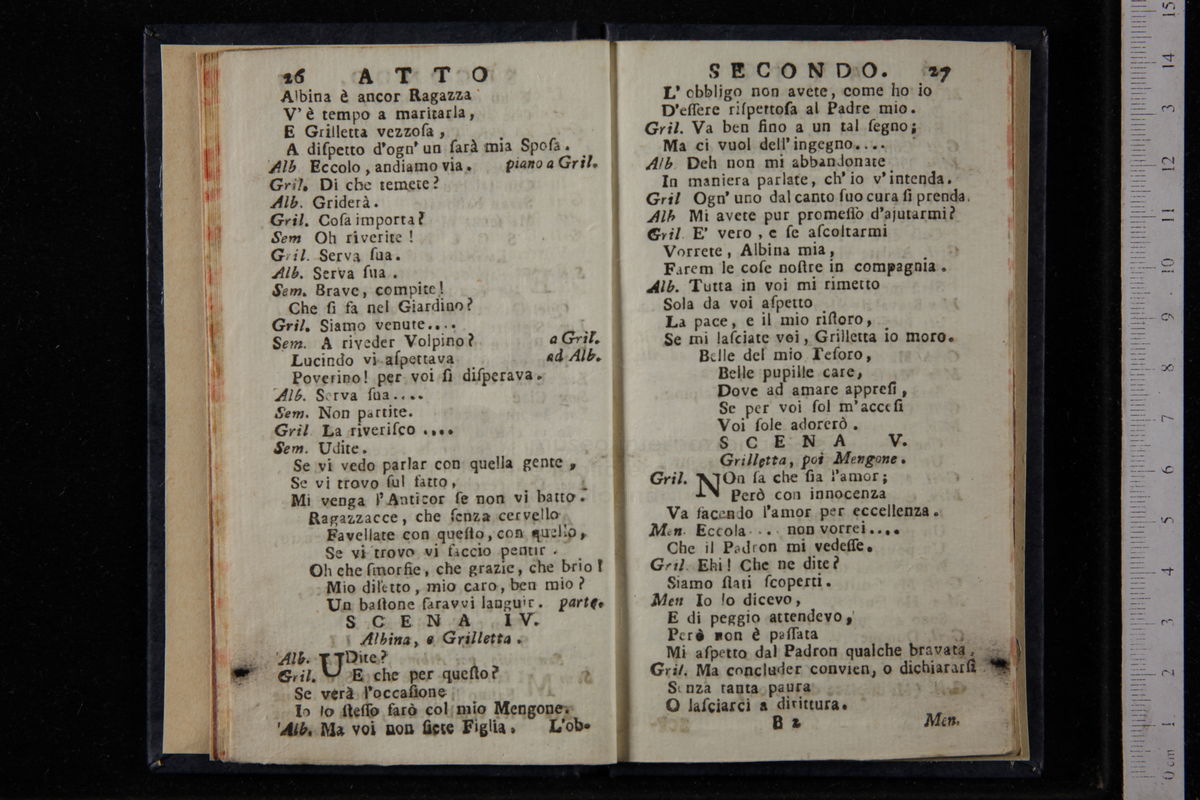 26 ATTO
Albina è ancor Ragazza
V' è tempo a maritarla,
E Grilletta vezzosa,
A dispetto d'ogn' un sarà mia Sposa.
Alb Eccolo, andiamo via. piano a Gril.
Gril. Di che temete?
Alb. Griderà.
Gril. Cosa importa?
Sem Oh riverite!
Gril. Serva sua.
Alb. Serva sua.
Sem. Brave, compite!
Che si fà nel Giardino?
Gril. Siamo venute....
Sem. A riveder Volpino? a Gril.
Lucindo vi aspettava ad Alb.
Poverino! per voi si disperava.
Alb. Serva sua....
Sem. Non partite.
Gril La riverisco ....
Sem. Udite.
Se vi vedo parlar con quella gente,
Se vi trovo sul fatto,
Mi venga l'Anticor se non vi batto.
Ragazzacce, che senza cervello
Favellate con questo, con quello,
Se vi trovo vi faccio pentir.
Oh che smorfie, che grazie, che brio!
Mio diletto, mio caro, ben mio?
Un bastone saravvi languir. parte.
SCENA IV.
Albina, e Grilletta.
Alb. UDite?
Gril. E che per questo?
Se verà l'occasione
Io lo stesso farò col mio Mengone.
Alb. Ma voi non siete Figlia. L'ob-
SECONDO. 27
L' obbligo non avete, come ho io
D'essere rispettosa al Padre mio.
Gril. Va ben fino a un tal segno;
Ma ci vuol dell'ingegno....
Alb Deh non mi abbandonate
In maniera parlate, ch' io v'intenda.
Gril Ogn' uno dal canto suo cura si prenda.
Alb Mi avete pur promesso d'ajutarmi?
Gril E' vero, e se ascoltarmi
Vorrete, Albina mia,
Farem le cose nostre in compagnia.
Alb. Tutta in voi mi rimetto
Sola da voi aspetto
La pace, e il mio ristoro,
Se mi lasciate voi, Grilletta io moro.
Belle del mio Tesoro,
Belle pupille care,
Dove ad amare appresi,
Se per voi sol m'accesi
Voi sole adorerò.
SCENA V.
Grilletta, poi Mengone.
Gril. NOn sa che sia l'amor;
Però con innocenza
Va facendo l'amor per eccellenza.
Men. Eccola ... non vorrei....
Che il Padron mi vedesse.
Gril. Ehi! Che ne dite?
Siamo stati scoperti.
Men Io lo dicevo,
E di peggio attendevo,
Però non è passata
Mi aspetto dal Padron qualche bravata.
Gril. Ma concluder convien, o dichiararsi
Senza tanta paura
O lasciarci a dirittura.
B 2 Men.
0 cm 1 2 3 4 5 6 7 8 9 10 11 12 3 14 15